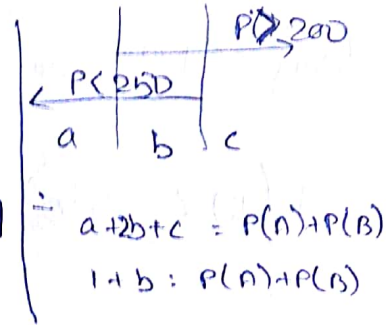 P(>200
P<250
a b c
∴ a+2b+c = P(A)+P(B)
1+b = P(A)+P(B)